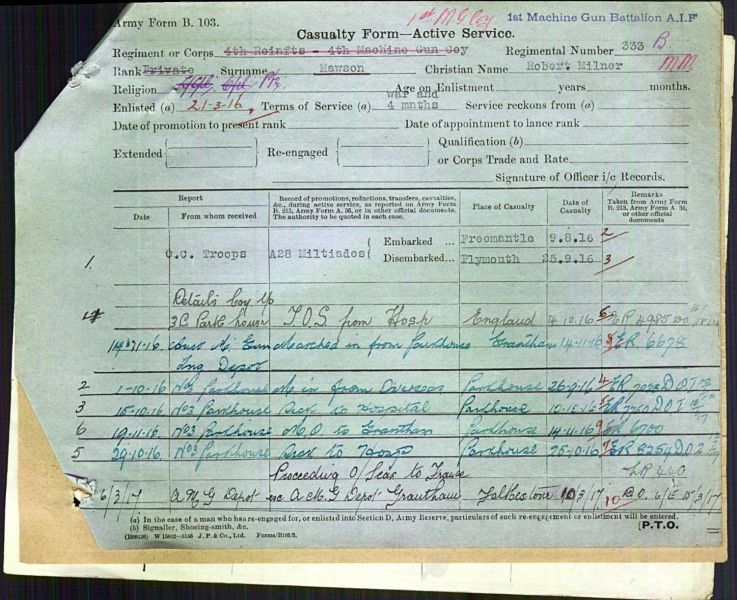 Army Form B. 103.
1st M G Coy
1st Machine Gun Battalion A.I.F
Casualty Form—Active Service.
Regiment or Corps 4th Reinfts - 4th Machine Gun Coy Regimental Number 333 B
Rank Private Surname Mawson Christian Name Robert Milner MM
Religion Age on Enlistment years months.
Enlisted (a) 21-3-16 Terms of Service (a) war and 4 mnths Service reckons from (a)
Date of promotion to present rank Date of appointment to lance rank
Extended Re-engaged Qualification (b)
or Corps Trade and Rate
Signature of Officer i/c Records.
Report
Date From whom received
Record of promotions, reductions, transfers, casualties, &c., during active service, as reported on Army Form B. 213, Army Form A. 36, or in other official documents. The authority to be quoted in each case.
Place of Casualty
Date of Casualty
Remarks Taken from Army Form B. 213, Army Form A. 36, or other official documents
1. O.C. Troops A28 Miltiades Embarked ... Freemantle 9.8.16 2
Disembarked... Plymouth 25.9.16 3
Details Coy
4 3C. Park house T.O.S. from Hosp England 14 10.16 6 ER 4985
11-16 Aust M. Gun Marched in from Parkhouse Grantham 14-11-16 8 ER 6678
Tng Depot
2 1-10-16 No3 Parkhouse M. in from Overseas Parkhouse 26-9-16 4
3 15-10.16 No3 Parkhouse Sick to Hospital Parkhouse 10.10.16 5
6 19-11-16. No3 Parkhouse M.O. to Grantham Parkhouse 14-11-16 9 ER 6700
5 29.10.16. No3 Parkhouse Sick to Hosp Parkhouse 25-10-16 7 ER 8254
Proceeding O/Seas to France
6/3/17 A M G Depot A M G Depot Grantham Folkestone 10/3/17 10
(a) In the case of a man who has re-engaged for, or enlisted into Section D, Army Reserve, particulars of such re-engagement or enlistment will be entered.
(b) Signaller, Shoeing-smith, &c.
[P.T.O.
J. P. & Co., Ltd. Forms/B103/3.